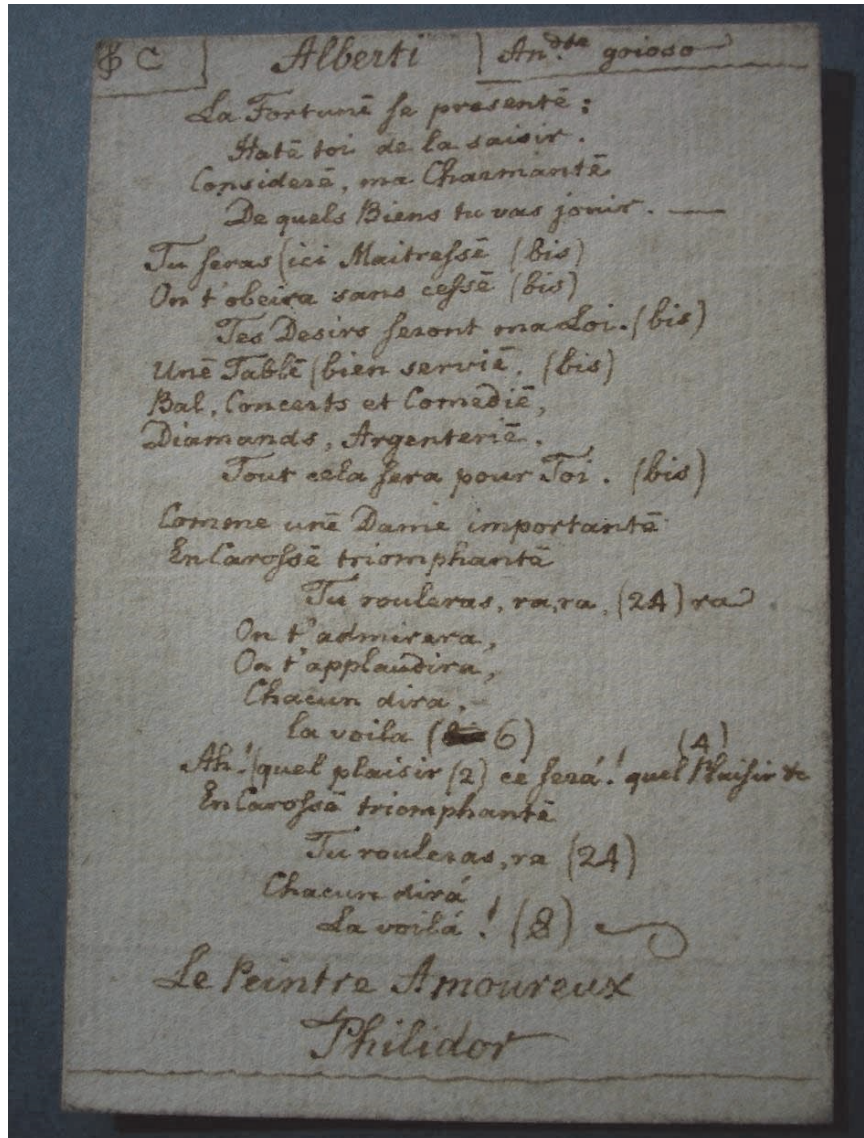 C Alberti An.dte grioso
La Fortunē se presentē :
Hatē toi de la saisir.
Considerē, ma Charmantē
De quels Biens tu vas jouir. —
Tu seras (ici Maitressē (bis)
On t'obeira sans cessē (bis)
Tes Desirs seront ma Loi. (bis)
Unē Tablē (bien serviē. (bis)
Bal, Concerts et Comediē,
Diamands, Argenteriē.
Tout cela sera pour Toi. (bis)
Comme unē Dame importantē
En Carossē triomphantē
Tu rouleras, ra, ra, (24) ra
On t'admirera,
On t'applaudira,
Chacun dira,
la voila ( 6) (4)
Ah! (quel plaisir (2) ce será! quel Plaisir &c
En Carossē triomphantē
Tu rouleras, ra (24)
Chacun dirá
La voilá ! (8)
Le Peintre Amoureux
Philidor